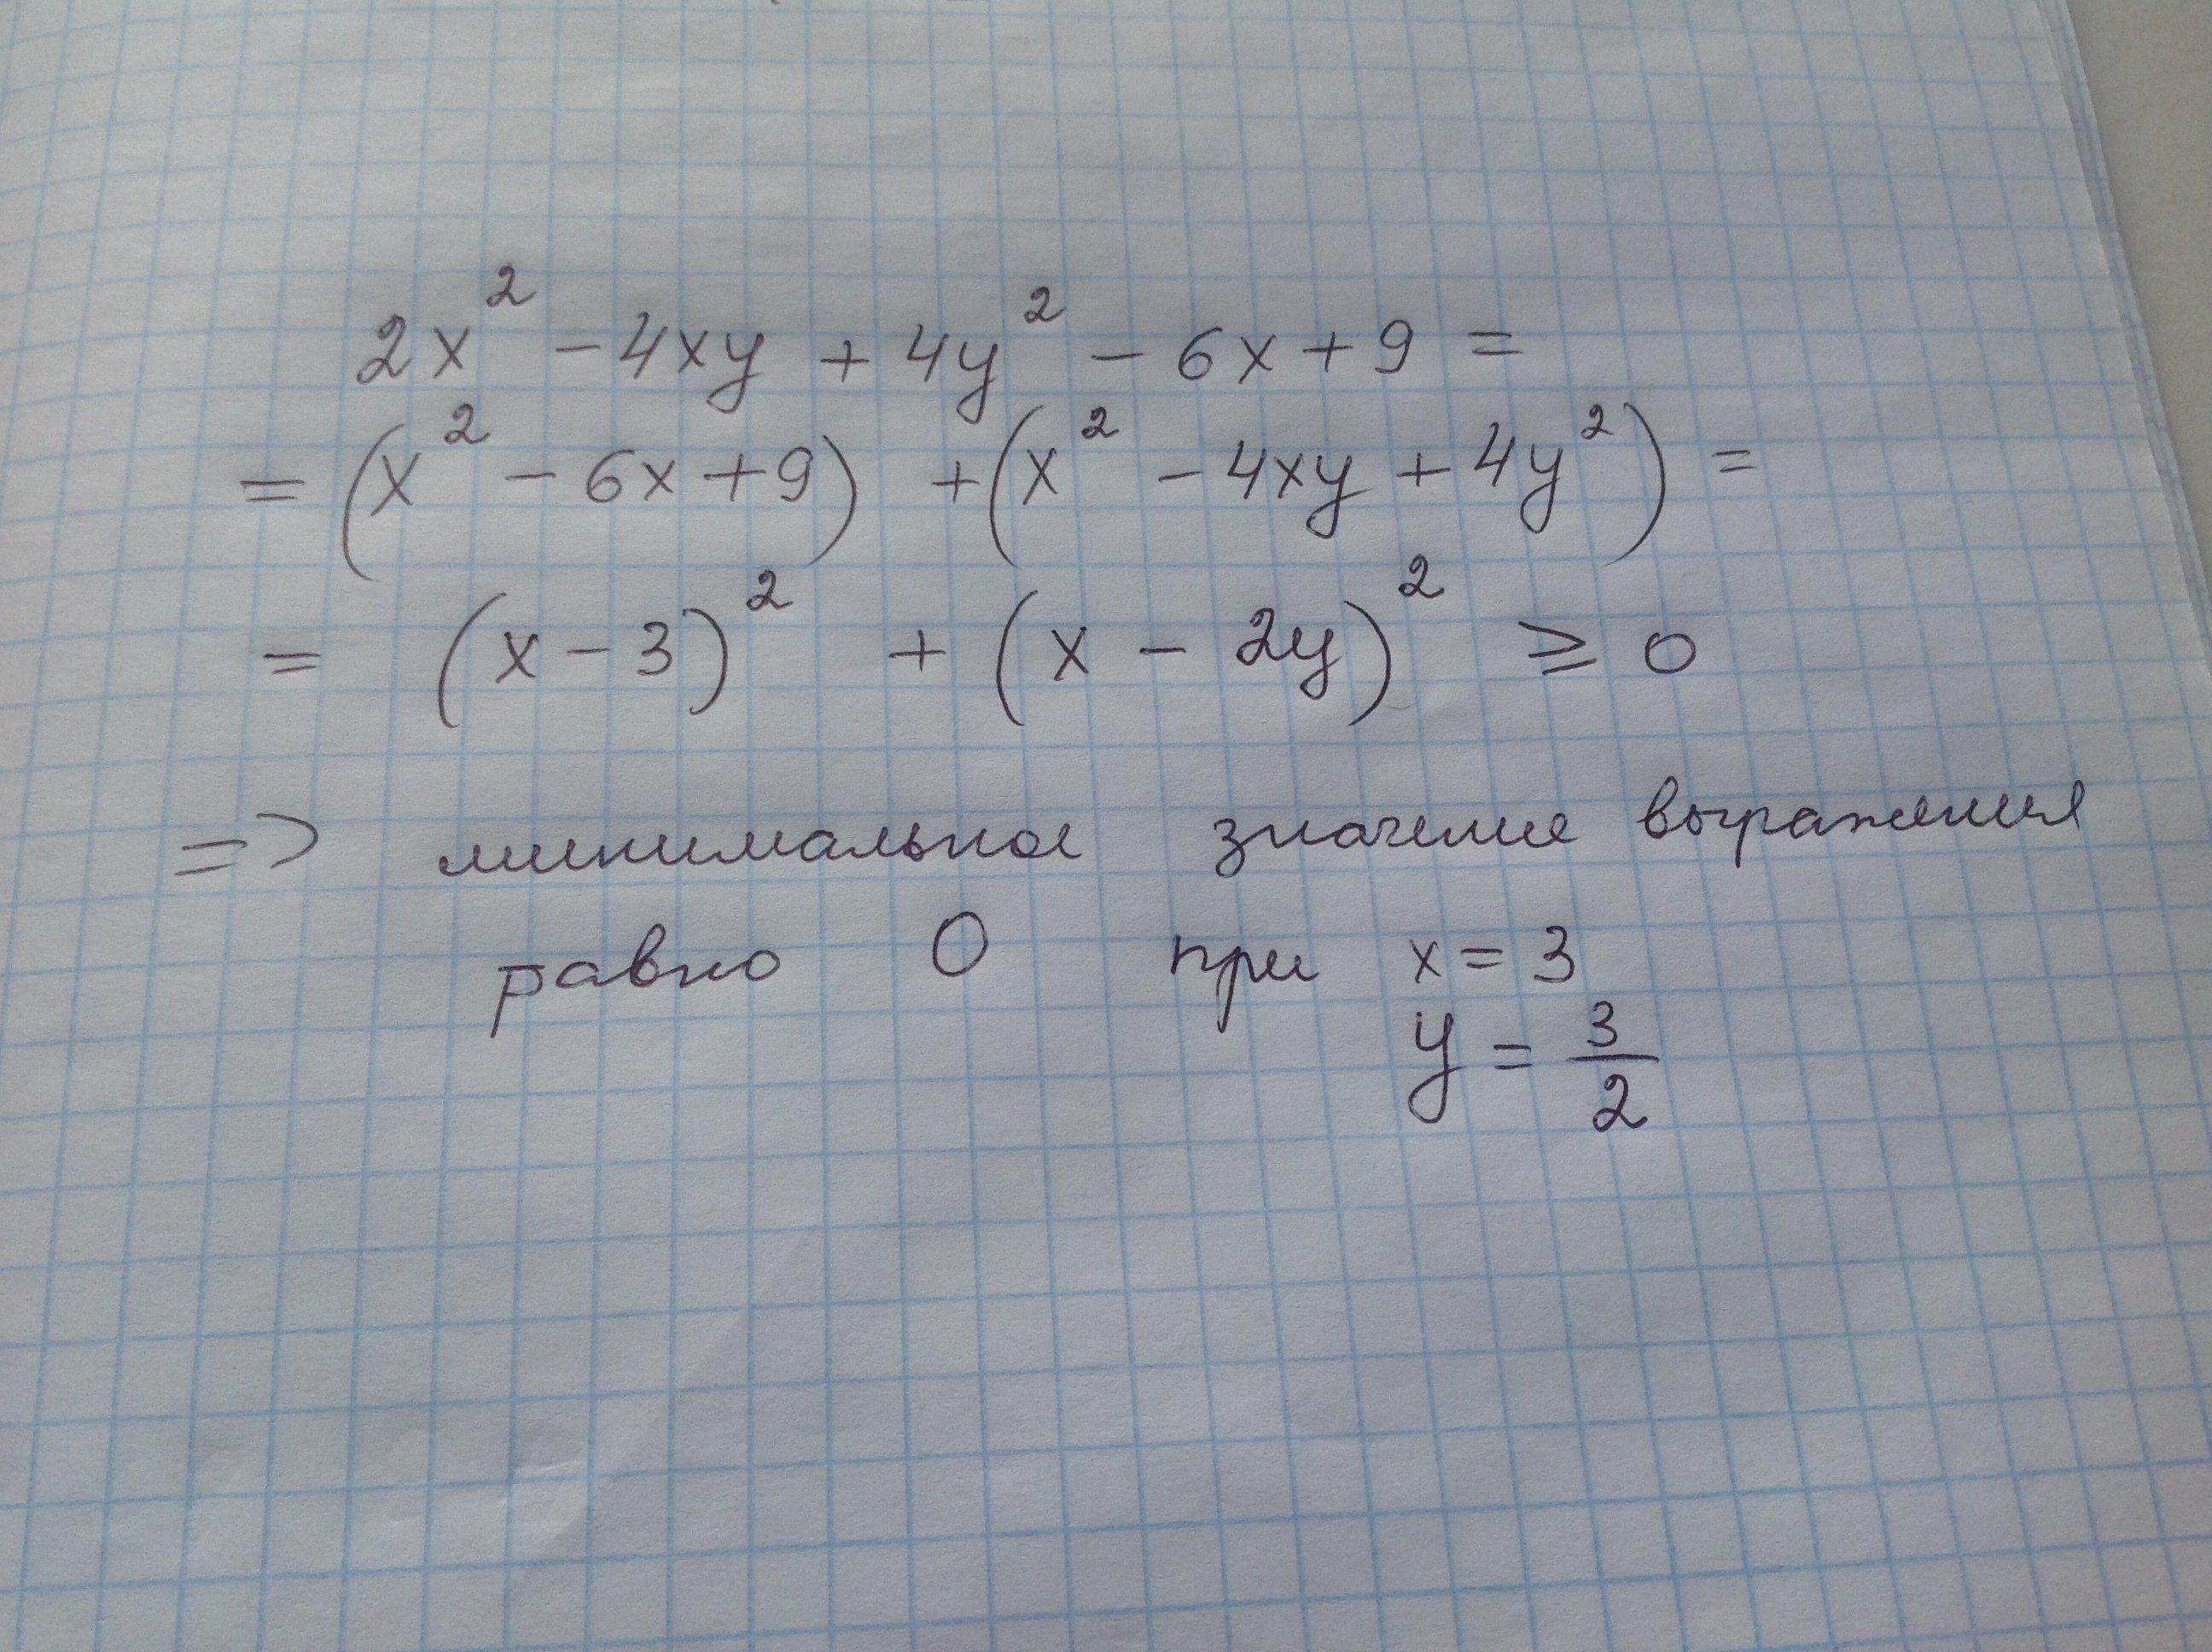 2x² - 4xy + 4y² - 6x + 9 =
= (x² - 6x + 9) + (x² - 4xy + 4y²) =
= (x - 3)² + (x - 2y)² ≥ 0
=> минимальное значение выражения
равно 0 при x = 3
y = 3/2